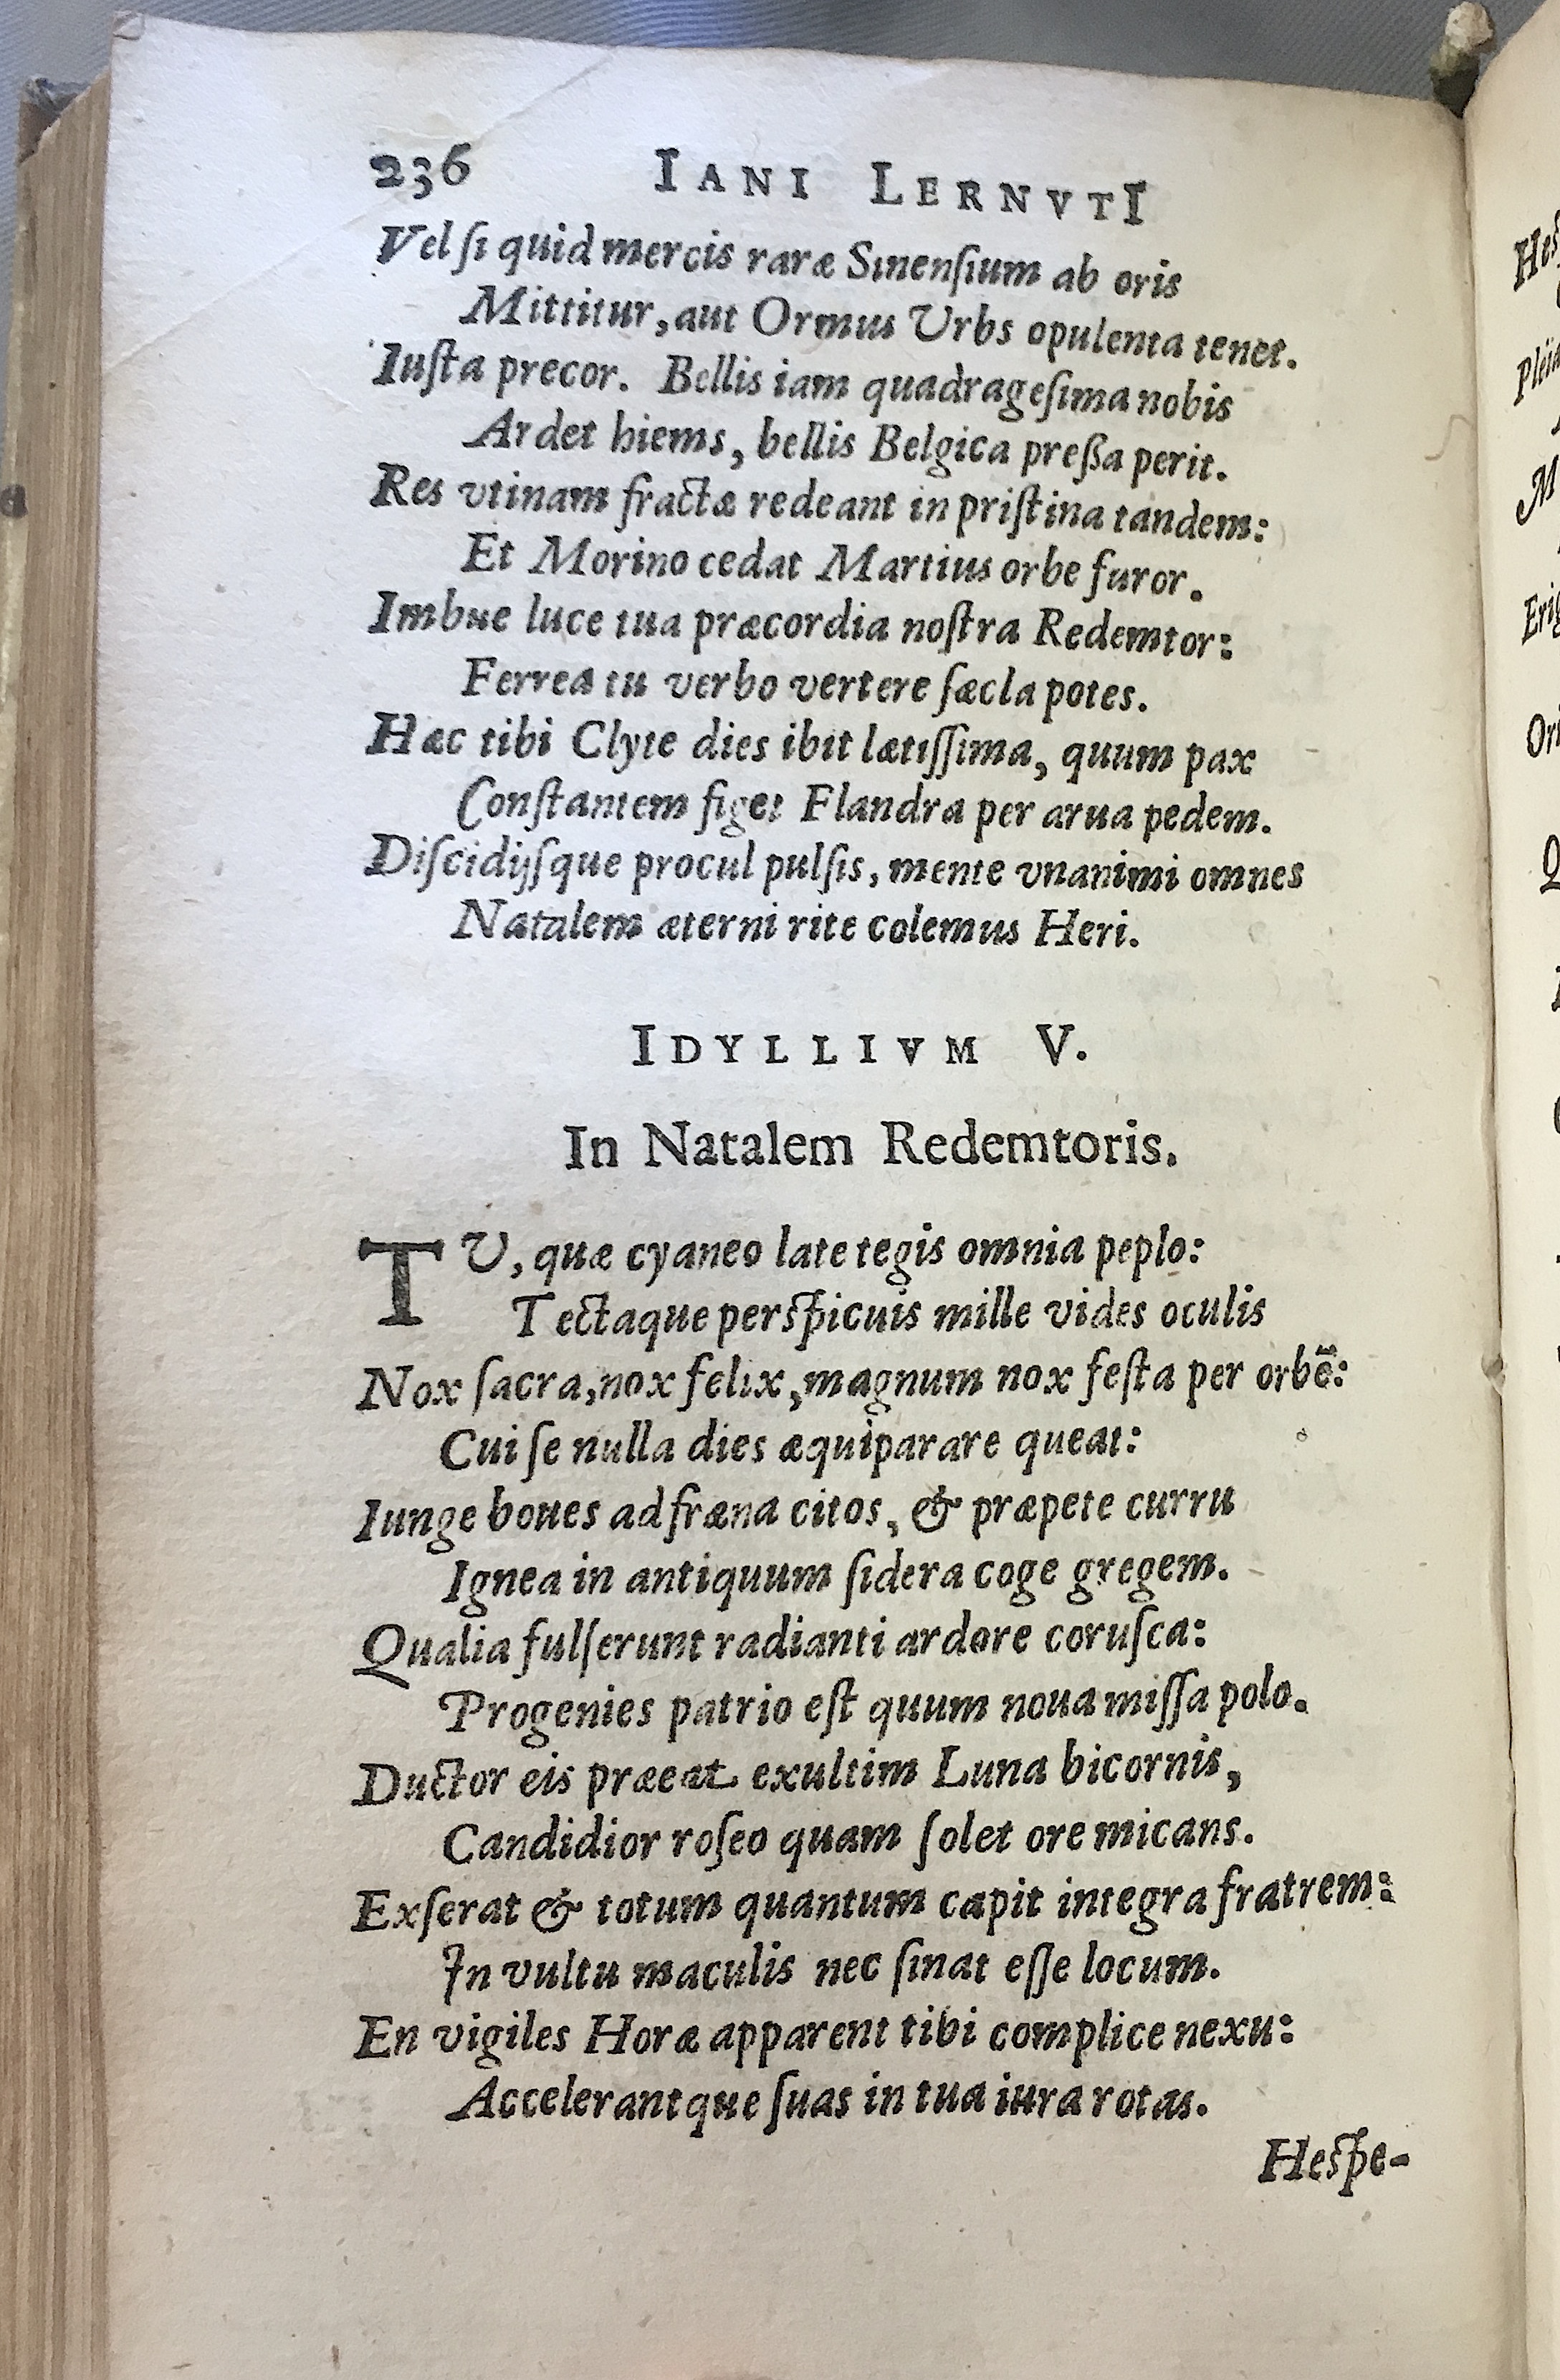 236 IANI LERNVTI
Vel ſi quid mercis raræ Sinenſium ab oris
Mittitur, aut Ormus Vrbs opulenta tenet.
Iuſta precor. Bellis iam quadrageſima nobis
Ardet hiems, bellis Belgica preßa perit.
Res vtinam fractæ redeant in priſtina tandem:
Et Morino cedat Martius orbe furor.
Imbue luce tua præcordia noſtra Redemtor:
Ferrea tu verbo vertere ſæcla potes.
Hæc tibi Clyte dies ibit lætiſſima, quum pax
Conſtantem figet Flandra per arua pedem.
Diſcidijſque procul pulſis, mente vnanimi omnes
Natalem æterni rite colemus Heri.
IDYLLIVM V.
In Natalem Redemtoris.
TV, quæ cyaneo late tegis omnia peplo:
Tectaque perſpicuis mille vides oculis
Nox ſacra, nox felix, magnum nox feſta per orbē:
Cui ſe nulla dies æquiparare queat:
Iunge boues ad fræna citos, & præpete curru
Ignea in antiquum ſidera coge gregem.
Qualia fulſerunt radianti ardore coruſca:
Progenies patrio eſt quum noua miſſa polo.
Ductor eis præeat exultim Luna bicornis,
Candidior roſeo quam ſolet ore micans.
Exſerat & totum quantum capit integra fratrem:
In vultu maculis nec ſinat eſſe locum.
En vigiles Horæ apparent tibi complice nexu:
Accelerantque ſuas in tua iura rotas.
Heſpe-